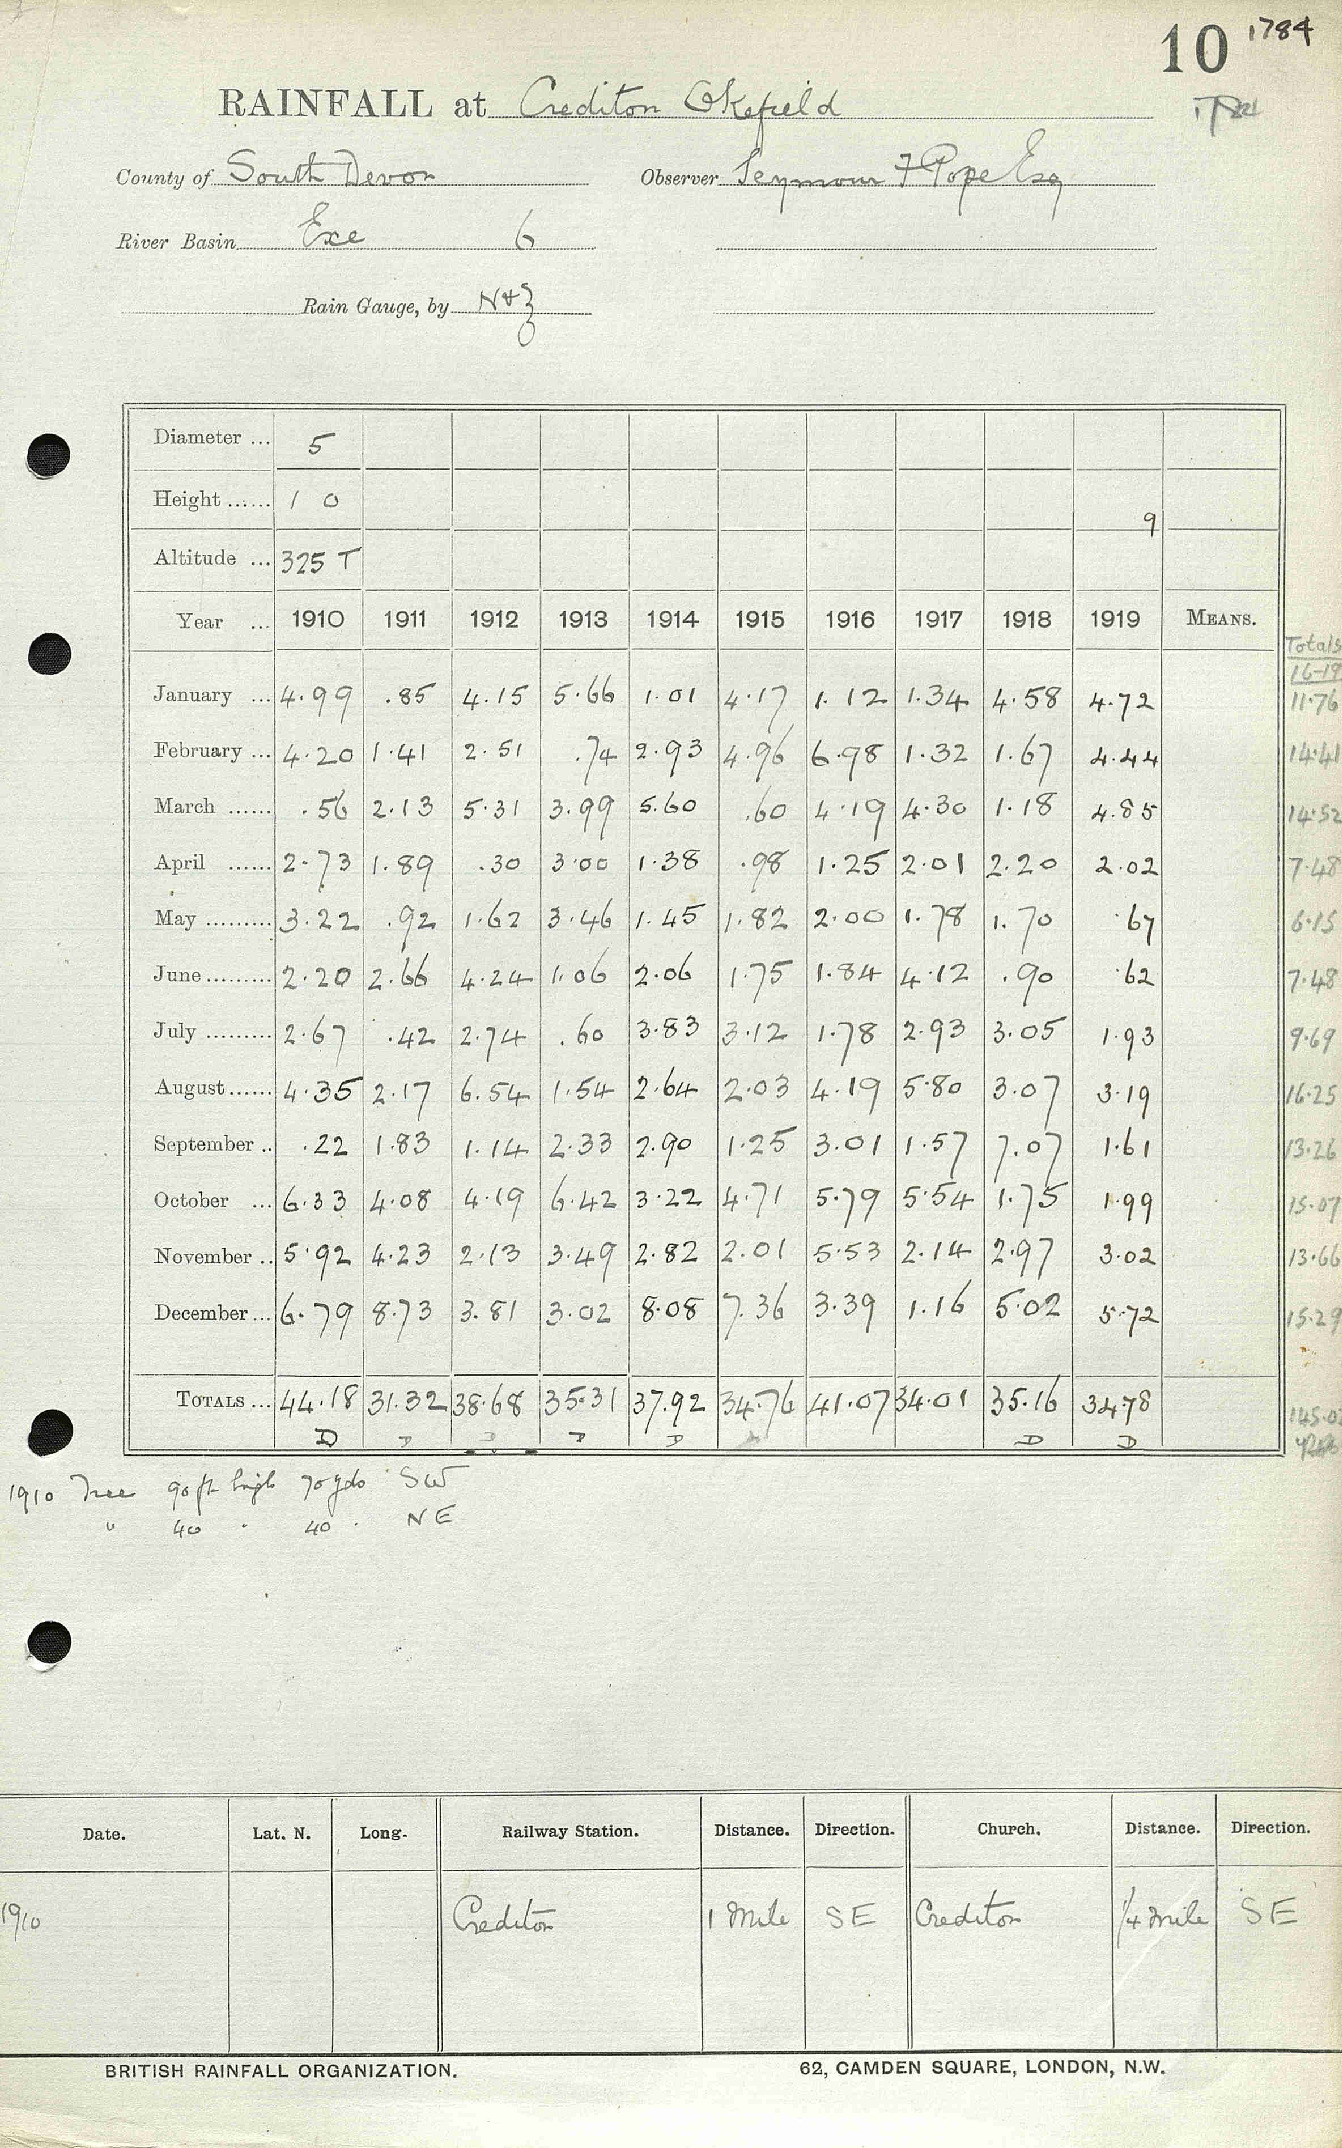 10 1784
RAINFALL at Crediton Okefield
County of South Devon Observer Seymour F Pope Esq
River Basin Exe 6
Rain Gauge, by N&Z
Diameter ... 5
Height ...... 1 0 9
Altitude ... 325 T
Year ... 1910 1911 1912 1913 1914 1915 1916 1917 1918 1919 MEANS. Totals
16-19
January ... 4.99 .85 4.15 5.66 1.01 4.17 1.12 1.34 4.58 4.72 11.76
February ... 4.20 1.41 2.51 .74 2.93 4.96 6.98 1.32 1.67 4.44 14.41
March ...... .56 2.13 5.31 3.99 5.60 .60 4.19 4.30 1.18 4.85 14.52
April ...... 2.73 1.89 .30 3.00 1.38 .98 1.25 2.01 2.20 2.02 7.48
May ......... 3.22 .92 1.62 3.46 1.45 1.82 2.00 1.78 1.70 .67 6.15
June ......... 2.20 2.66 4.24 1.06 2.06 1.75 1.84 4.12 .90 .62 7.48
July ......... 2.67 .42 2.74 .60 3.83 3.12 1.78 2.93 3.05 1.93 9.69
August ...... 4.35 2.17 6.54 1.54 2.64 2.03 4.19 5.80 3.07 3.19 16.25
September .. .22 1.83 1.14 2.33 2.90 1.25 3.01 1.57 7.07 1.61 13.26
October ... 6.33 4.08 4.19 6.42 3.22 4.71 5.79 5.54 1.75 1.99 15.07
November .. 5.92 4.23 2.13 3.49 2.82 2.01 5.53 2.14 2.97 3.02 13.66
December ... 6.79 8.73 3.81 3.02 8.08 7.36 3.39 1.16 5.02 5.72 15.29
TOTALS ... 44.18 31.32 38.68 35.31 37.92 34.76 41.07 34.01 35.16 34.78
D D D D D D D
1910 Tree 90 ft high 70 yds SW
" 40 " 40 . NE
Date. Lat. N. Long. Railway Station. Distance. Direction. Church. Distance. Direction.
1910 Crediton 1 Mile SE Crediton 1/4 mile SE
BRITISH RAINFALL ORGANIZATION. 62, CAMDEN SQUARE, LONDON, N.W.